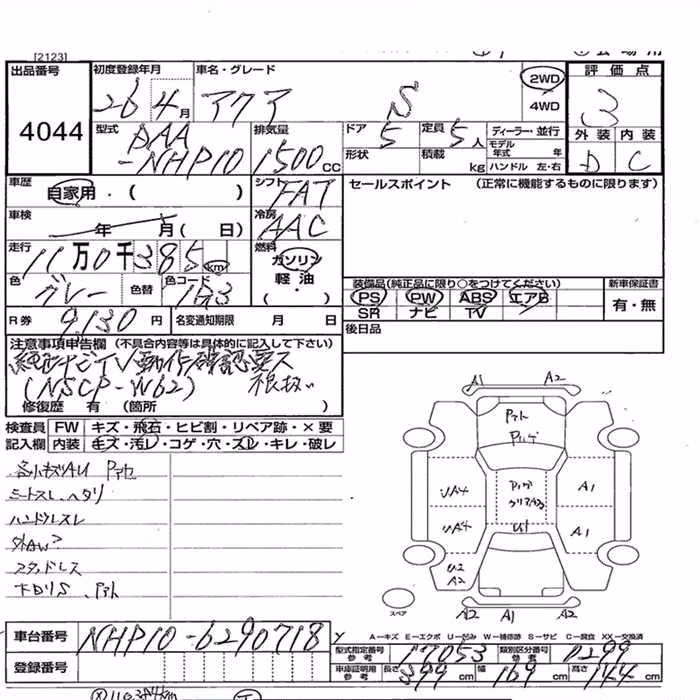 [2123]
出品番号 初度登録年月 車名・グレード 評価点
4044 26 4月 アクア S 2WD 4WD 3
外装 内装
D C
型式 DAA-NHP10 排気量 1500cc ドア 5 定員 5人 ディーラー・並行
形状 積載 kg モデル年式 年式 ハンドル 左・右
車歴 自家用・( ) シフト FAT セールスポイント (正常に機能するものに限ります)
車検 年 月( 日) 冷房 AAC
走行 11万0千385km 燃料 ガソリン 軽油 ( ・ )
色 グレー 色替 色コード 1G3
装備品(純正品に限り○をつけてください) 新車保証書
PS PW ABS エアB 有・無
SR ナビ TV
R券 9,130円 名変通知期限 月 日 後日品
注意事項申告欄 (不具合内容等は具体的に記入して下さい)
純正ナビTV動作確認
(NSCP-W62)
修復歴 有 (箇所 )
検査員記入欄 FW キズ・飛石・ヒビ割・リペア跡・×要
内装 キズ・汚レ・コゲ・穴・スレ・キレ・破レ
シートスレ、ヘタリ
ハンドルスレ
外AW?
スタッドレス
A1 A2
UA4 A1
UA4 U1 A1
U2
A2
スペア
A2 A1 A2
A-キズ E-エクボ U-凹み W-補修跡 S-サビ C-腐食 XX-交換済
車台番号 NHP10-6290718
型式指定番号 参考 17053 類別区分番号 参考 0299
登録番号 車庫証明用 参考 長さ 399cm 幅 169cm 高さ 144cm